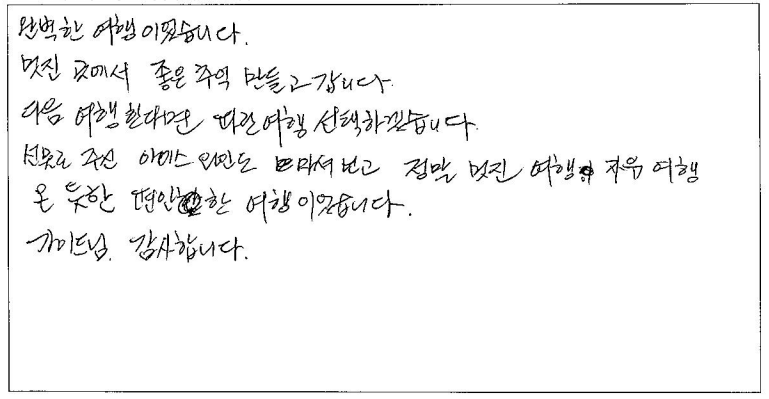 완벽한 여행이였습니다.
멋진 곳에서 좋은 추억 만들고 갑니다.
다음 여행한다면 파란여행 선택하겠습니다.
선물로 주신 아이스 와인도 마셔보고 정말 멋진 여행 자유 여행
온 듯한 편안한 여행이였습니다.
가이드님. 감사합니다.